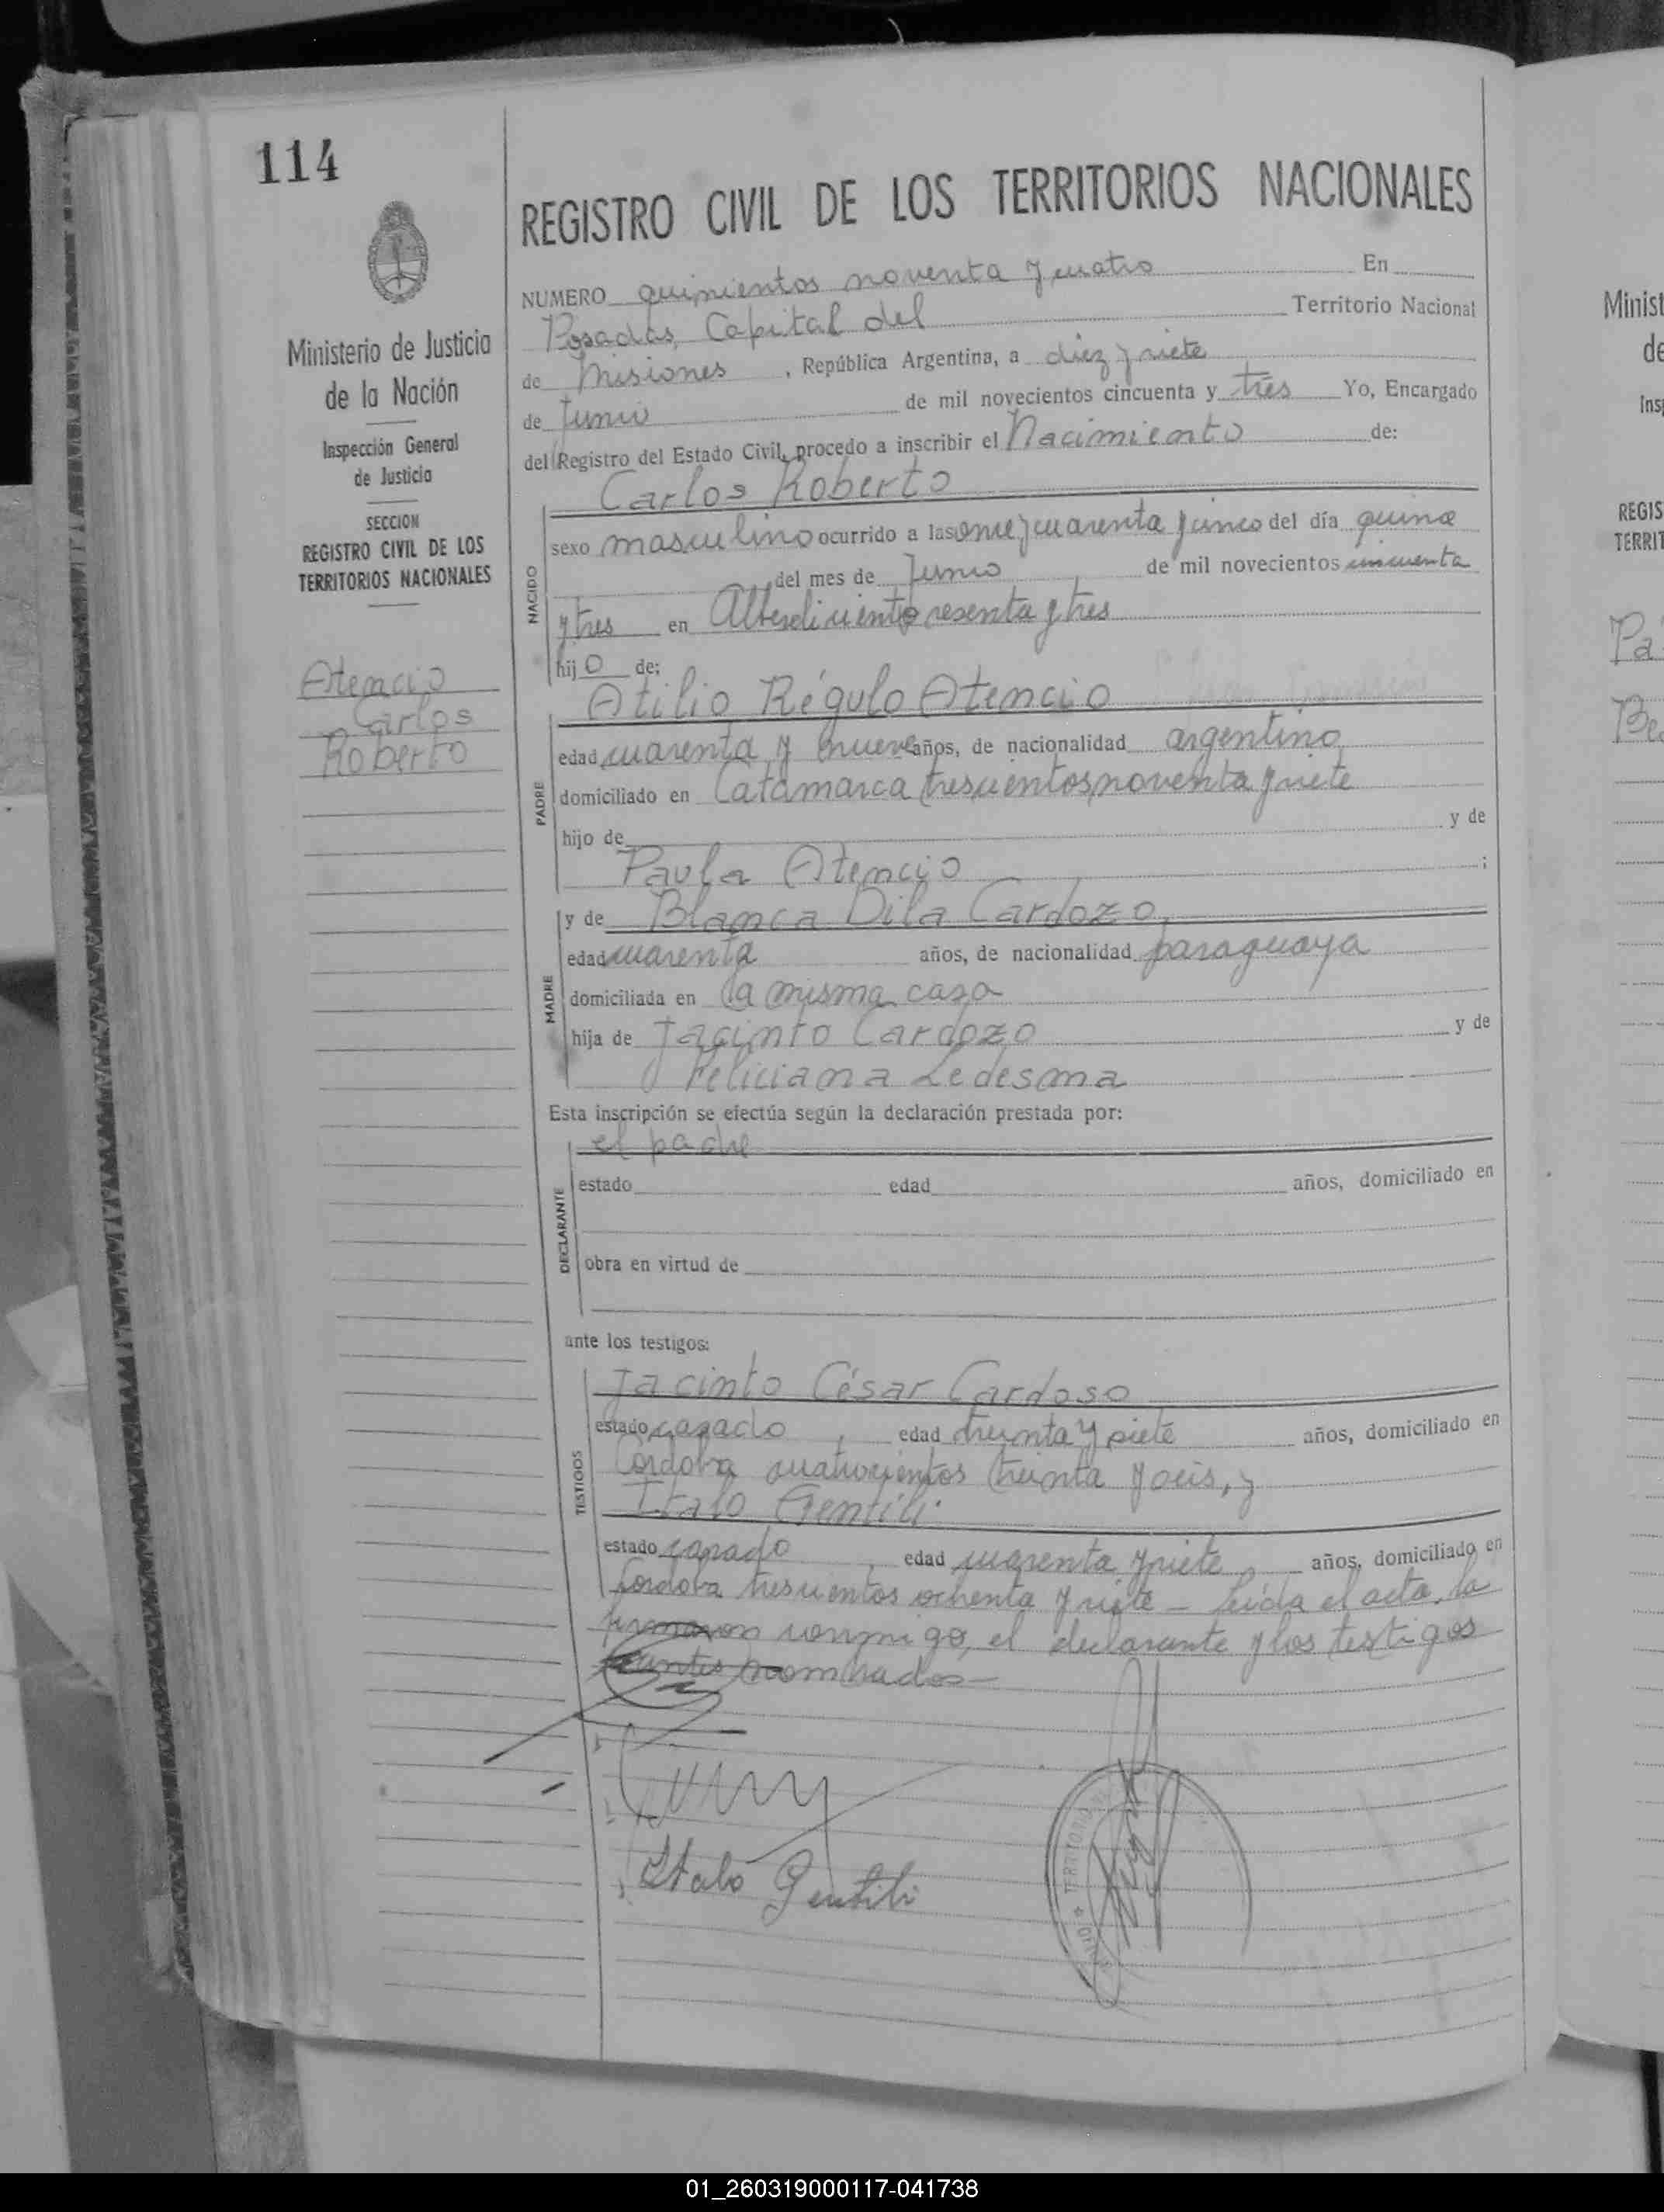 114
REGISTRO CIVIL DE LOS TERRITORIOS NACIONALES
Ministerio de Justicia
de la Nación
Inspección General
de Justicia
SECCION
REGISTRO CIVIL DE LOS
TERRITORIOS NACIONALES
Atencio
Carlos
Roberto
NUMERO quinientos noventa y cuatro En
Posadas, Capital del Territorio Nacional
de Misiones, República Argentina, a diez y siete
de Junio de mil novecientos cincuenta y tres Yo, Encargado
del Registro del Estado Civil, procedo a inscribir el Nacimiento de:
Carlos Roberto
NACIDO
sexo masculino ocurrido a las once y cuarenta y cinco del día quince
del mes de Junio de mil novecientos cincuenta
y tres en Alberdi ciento sesenta y tres
hijo de:
Atilio Régulo Atencio
PADRE
edad cuarenta y nueve años, de nacionalidad argentino
domiciliado en Catamarca trescientos noventa y siete
hijo de y de
Paula Atencio ;
MADRE
y de Blanca Dila Cardozo,
edad cuarenta años, de nacionalidad paraguaya
domiciliada en la misma casa
hija de Jacinto Cardozo y de
Feliciana Ledesma
Esta inscripción se efectúa según la declaración prestada por:
el padre
DECLARANTE
estado edad años, domiciliado en
obra en virtud de
ante los testigos:
TESTIGOS
Jacinto César Cardoso
estado casado, edad treinta y siete años, domiciliado en
Córdoba cuatrocientos treinta y seis, y
Italo Gentili
estado casado, edad cuarenta y siete años, domiciliado en
Córdoba trescientos ochenta y siete - Leída el acta, la
firmaron conmigo, el declarante y los testigos
antes nombrados-
Italo Gentili
Minist
de
Ins
REGIS
TERRIT
Pa
Be
01_260319000117-041738